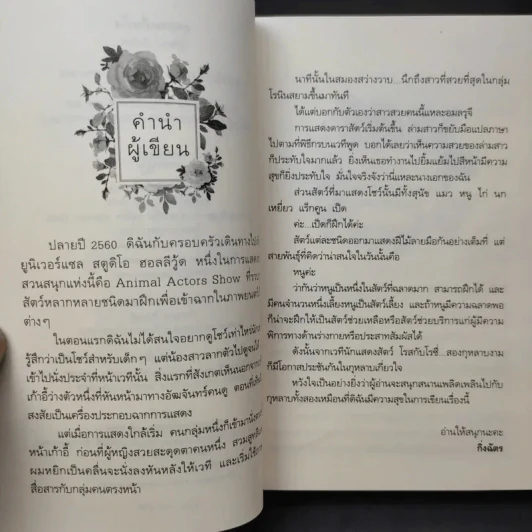 คำนำ
ผู้เขียน
ปลายปี 2560 ดิฉันกับครอบครัวเดินทางไป
ยูนิเวอร์แซล สตูดิโอ ฮอลลีวู้ด หนึ่งในการแสดง
สวนสนุกแห่งนี้คือ Animal Actors Show ที่
สัตว์หลากหลายชนิดมาฝึกเพื่อเข้าฉากในภาพยนตร์
ต่างๆ
ในตอนแรกดิฉันไม่ได้สนใจอยากดูโชว์เท่าไหร่นัก
รู้สึกว่าเป็นโชว์สำหรับเด็กๆ แต่น้องสาวลากตัวไปดูจนได้
เข้าไปนั่งประจำที่หน้าเวทีนั้น สิ่งแรกที่สังเกตเห็นนอกจาก
เก้าอี้ว่างตัวหนึ่งที่หันหน้ามาทางอัฒจันทร์คนดู ตอนที่เห็น
สงสัยเป็นเครื่องประกอบฉากการแสดง
แต่เมื่อการแสดงใกล้เริ่ม คนกลุ่มหนึ่งก็เข้ามานั่ง
หน้าเก้าอี้ ก่อนที่ผู้หญิงสวยสะดุดตาคนหนึ่ง สวม
ผมหยิกเป็นคลื่นจะนั่งลงหันหลังให้เวที และเริ่มใช้
สื่อสารกับกลุ่มคนตรงหน้า
นาทีนั้นในสมองสว่างวาบ...นึกถึงสาวที่สวยที่สุดในกลุ่ม
โรนินสยามขึ้นมาทันที
ได้แต่บอกกับตัวเองว่าสาวสวยคนนี้แหละอมลรุจี
การแสดงดาราสัตว์เริ่มต้นขึ้น ล่ามสาวก็ขยับมือแปลภาษา
ไปตามที่พิธีกรบนเวทีพูด บอกได้เลยว่าเห็นความสวยของล่ามสาว
ก็ประทับใจมากแล้ว ยิ่งเห็นเธอทำงานไปยิ้มแย้มไปสีหน้ามีความ
สุขก็ยิ่งประทับใจ มั่นใจจริงจังว่านี่แหละนางเอกของฉัน
ส่วนสัตว์ที่มาแสดงโชว์นั้นมีทั้งสุนัข แมว หนู ไก่ นก
เหยี่ยว แร็คคูน เป็ด
ค่ะ...เป็ดก็ฝึกได้ค่ะ
สัตว์แต่ละชนิดออกมาแสดงฝีไม้ลายมือกันอย่างเต็มที่ แต่
สายพันธุ์ที่คิดว่าน่าสนใจในวันนั้นคือ
หนูค่ะ
ว่ากันว่าหนูเป็นหนึ่งในสัตว์ที่ฉลาดมาก สามารถฝึกได้ และ
มีคนจำนวนหนึ่งเลี้ยงหนูเป็นสัตว์เลี้ยง และถ้าหนูมีความฉลาดพอ
ก็น่าจะฝึกให้เป็นสัตว์ช่วยเหลือหรือสัตว์ช่วยบริการแก่ผู้มีความ
พิการทางด้านร่างกายหรือประสาทสัมผัสได้
ดังนั้นจากเวทีนักแสดงสัตว์ โรสกับโรซี่...สองกุหลาบงาม
ก็มีโอกาสประชันกันในกุหลาบเกี่ยวใจ
หวังใจเป็นอย่างยิ่งว่าผู้อ่านจะสนุกสนานเพลิดเพลินไปกับ
กุหลาบทั้งสองเหมือนที่ดิฉันมีความสุขในการเขียนเรื่องนี้
อ่านให้สนุกนะคะ
กิ่งฉัตร